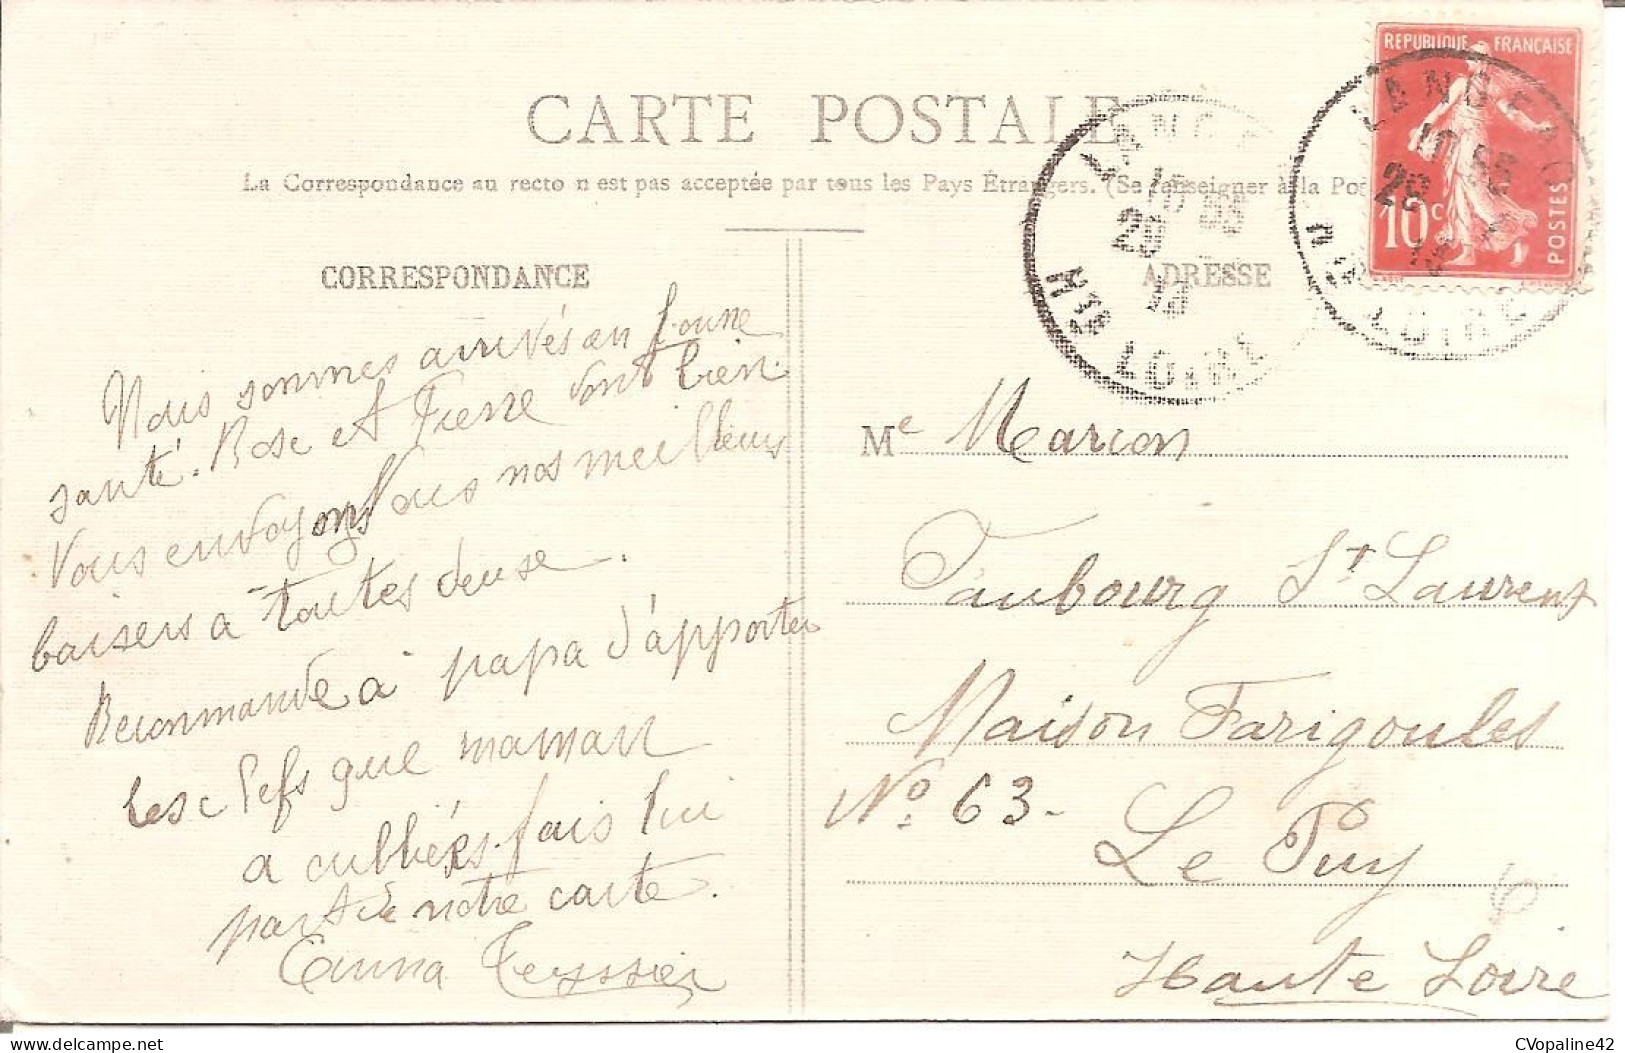 CARTE POSTALE
La Correspondance au recto n'est pas acceptée par tous les Pays Étrangers. (Se renseigner à la Pos
CORRESPONDANCE
ADRESSE
REPUBLIQUE FRANÇAISE
10c POSTES
LANGEAC
10 55
28
HTE LOIRE
LANGE
28
HTE LOIRE
Nous sommes arrivés en bonne
santé. Rose et Pierre vont bien.
Vous envoyons nos meilleurs
baisers a toutes deuse.
Recommande a papa d'apporter
les clefs que maman
a oubliées. fais lui
part de notre carte.
Emma Teyssier
Me Marcon
Faubourg St Laurent
Maison Farigoules
No 63-
Le Puy
Haute Loire
CVopaline42